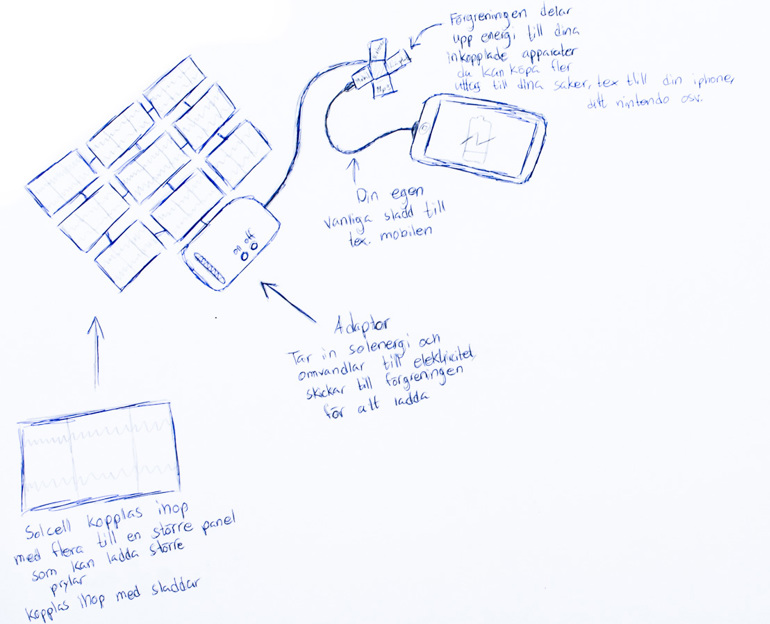 Förgreningen delar
upp energi till dina
inkopplade apparater
du kan köpa fler
uttag till dina saker, tex till din iphone,
ditt nintendo osv.
Din egen
vanliga sladd till
tex. mobilen
on off
Adaptor
Tar in solenergi och
omvandlar till elektricitet
skickar till förgreningen
för att ladda
Solcell kopplas ihop
med flera till en större panel
som kan ladda större
prylar
kopplas ihop med sladdar